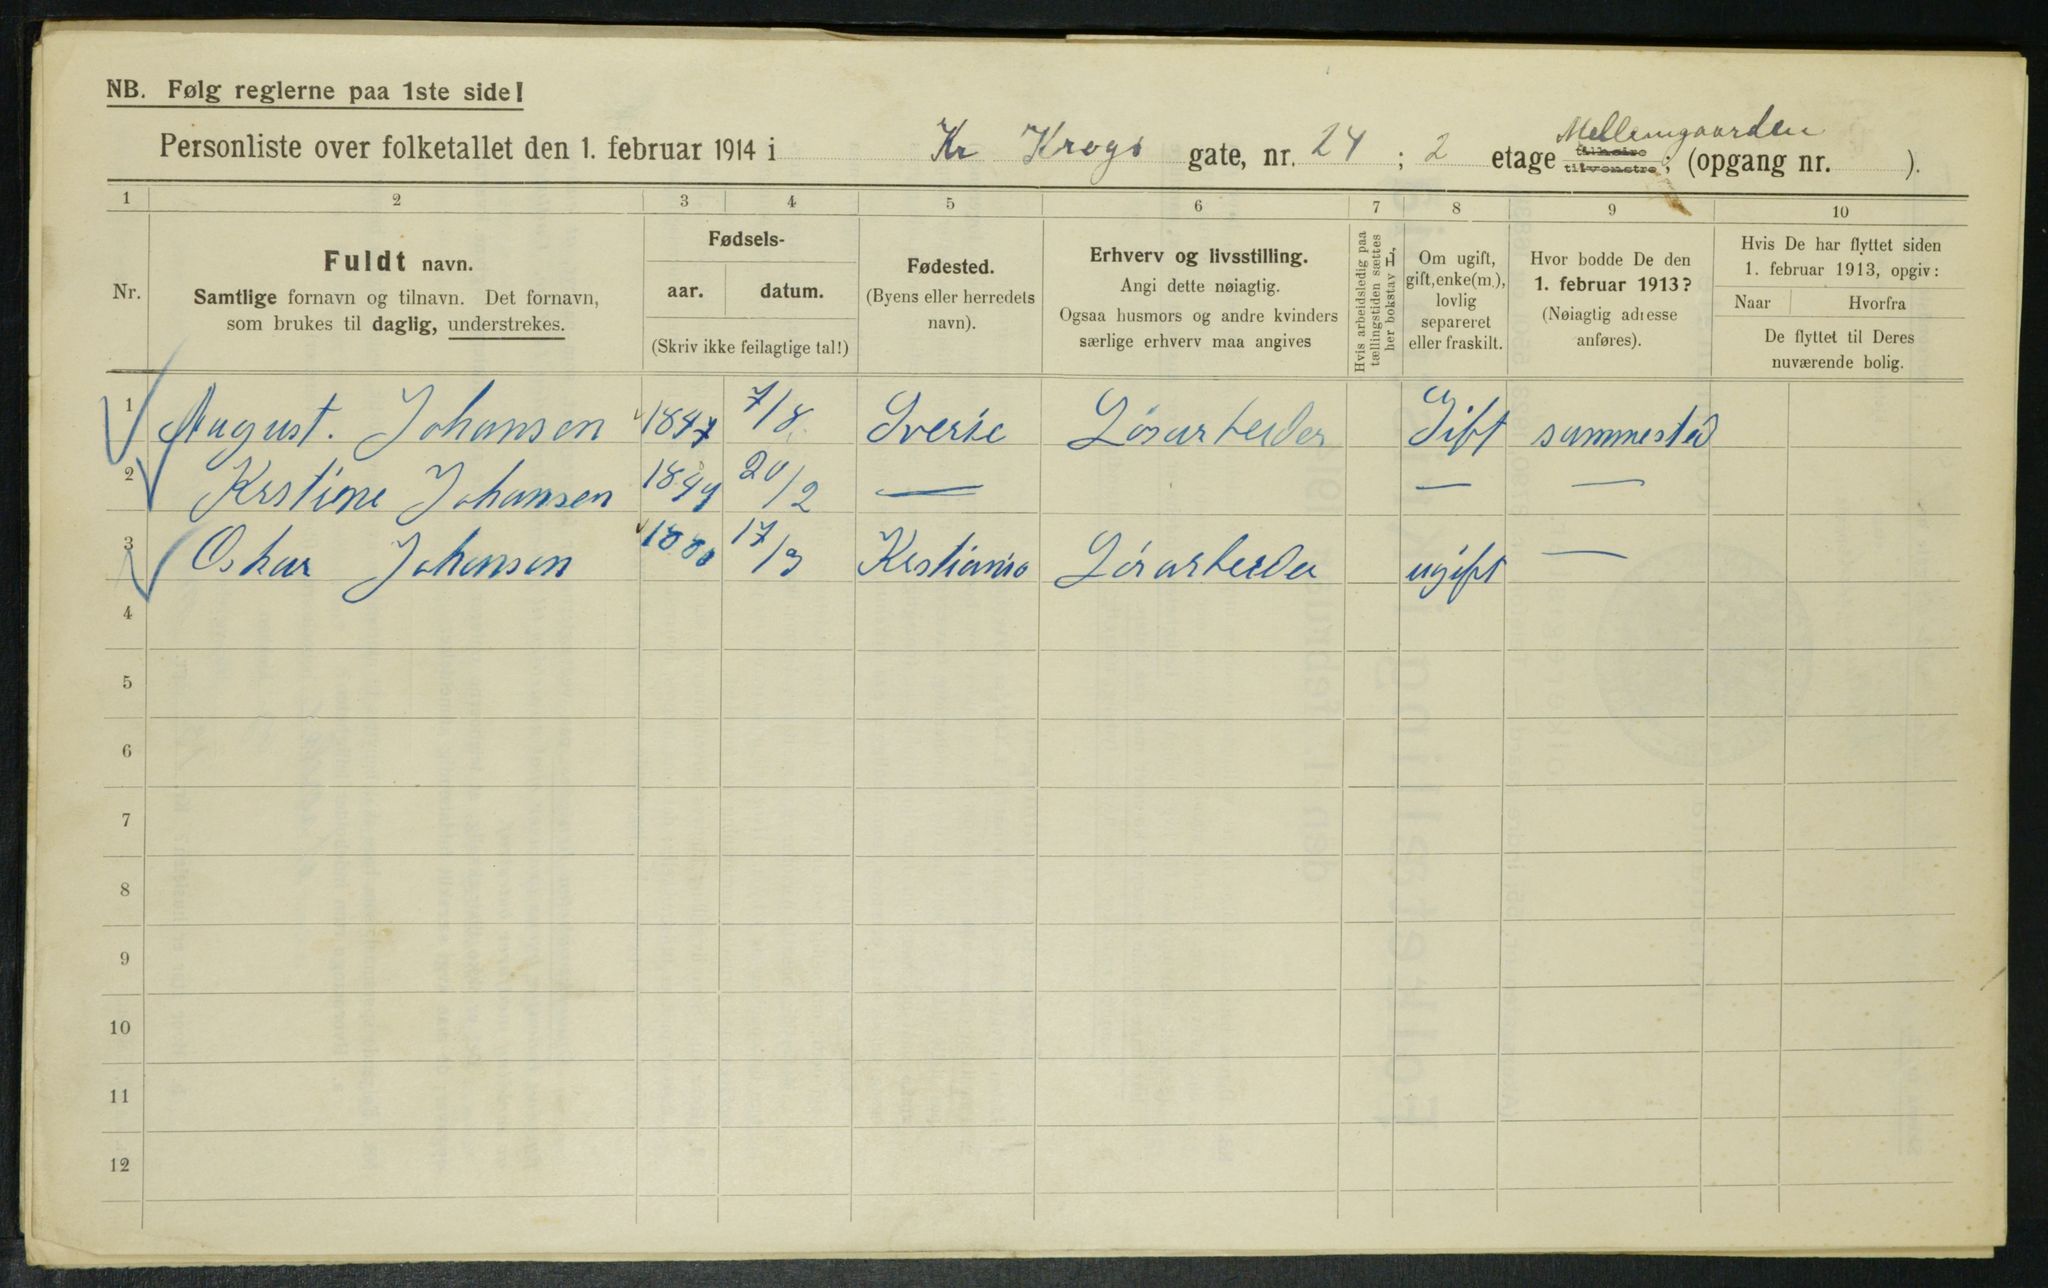 NB. Følg reglerne paa 1ste side!
Personliste over folketallet den 1. februar 1914 i Kr Krogs gate, nr. 24 ; 2 etage Mellemgaarden tilhøire tilvenstre ; (opgang nr. ).
1 2 3 4 5 6 7 8 9 10
Nr.
Fuldt navn.
Samtlige fornavn og tilnavn. Det fornavn,
som brukes til daglig, understrekes.
Fødsels-
aar. datum.
(Skriv ikke feilagtige tal!)
Fødested.
(Byens eller herredets
navn).
Erhverv og livsstilling.
Angi dette nøiagtig.
Ogsaa husmors og andre kvinders
særlige erhverv maa angives
Hvis arbeidsledig paa
tællingstiden sættes
her bokstav L,
Om ugift,
gift, enke(m.),
lovlig
separeret
eller fraskilt.
Hvor bodde De den
1. februar 1913?
(Nøiagtig adresse
anføres).
Hvis De har flyttet siden
1. februar 1913, opgiv:
Naar Hvorfra
De flyttet til Deres
nuværende bolig.
1 August. Johansen 1847 7/8 Sverie Løsarbeider Gift sammested
2 Krstine Johansen 1849 20/2 — — —
3 Oskar Johansen 1880 17/3 Krstiania Løsarbeider ugift —
4
5
6
7
8
9
10
11
12